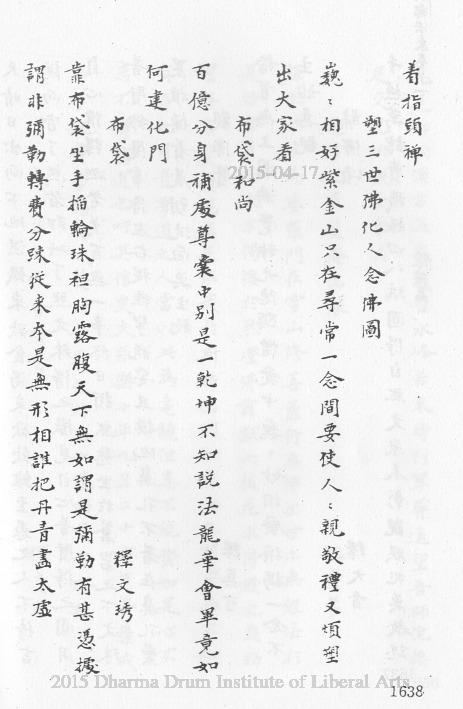 着指頭禪
塑三世佛化人念佛圖
巍〻相好紫金山只在尋常一念間要使人〻親敬禮又煩塑
出大家看
布袋和尚
百億分身補處尊囊中別是一乾坤不知説法龍華會畢竟如
何建化門
布袋
釋文琇
靠布袋坐手掐輪珠袒胸露腹天下無如謂是彌勒有甚憑據
謂非彌勒轉費分疎從来本是無形相誰把丹青畫太虛
2015-04-17
2015 Dharma Drum Institute of Liberal Arts
1638